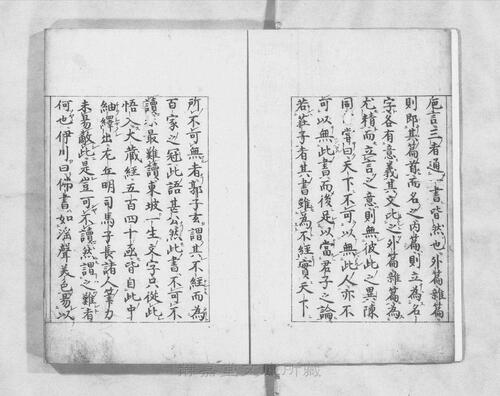 巵言三者通一書皆然也外篇雜篇
則即其篇首而名之内篇則立為名
字各有意義其文比之外篇雜篇為
尤精而立言之意則無彼此之異陳
同甫嘗曰天下不可以無此人亦不
可以無此書而後足以當君子之論
若莊子者其書雖為不經實天下
所不可無者郭子玄謂其不經而為
百家之冠此語甚公然此書不可不
讀亦最難讀東坡一生文字只從此
悟入大藏經五百四十函皆自此中
紬繹出左丘明司馬子長諸人筆力
未易敵此是豈可不讀然謂之難者
何也伊川曰佛書如淫聲美色易以
靜嘉堂文庫所藏